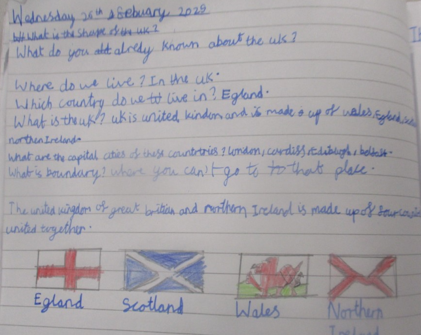 Wednesday 26th February 2029
What is the shape of the uk?
What do you alredy known about the uk?
Where do we live? In the uk.
Which country do we live in? Egland.
What is the uk? uk is united kindom and is made up of wales, Egland,
northen Ireland.
What are the capital cities of these countries? london, cardiff, edinbrugh, belfast.
What is boundary? where you can't go to that place.
The united kingdom of great britian and northern Ireland is made up of four
united together.
Egland Scotland Wales Northern
Ireland